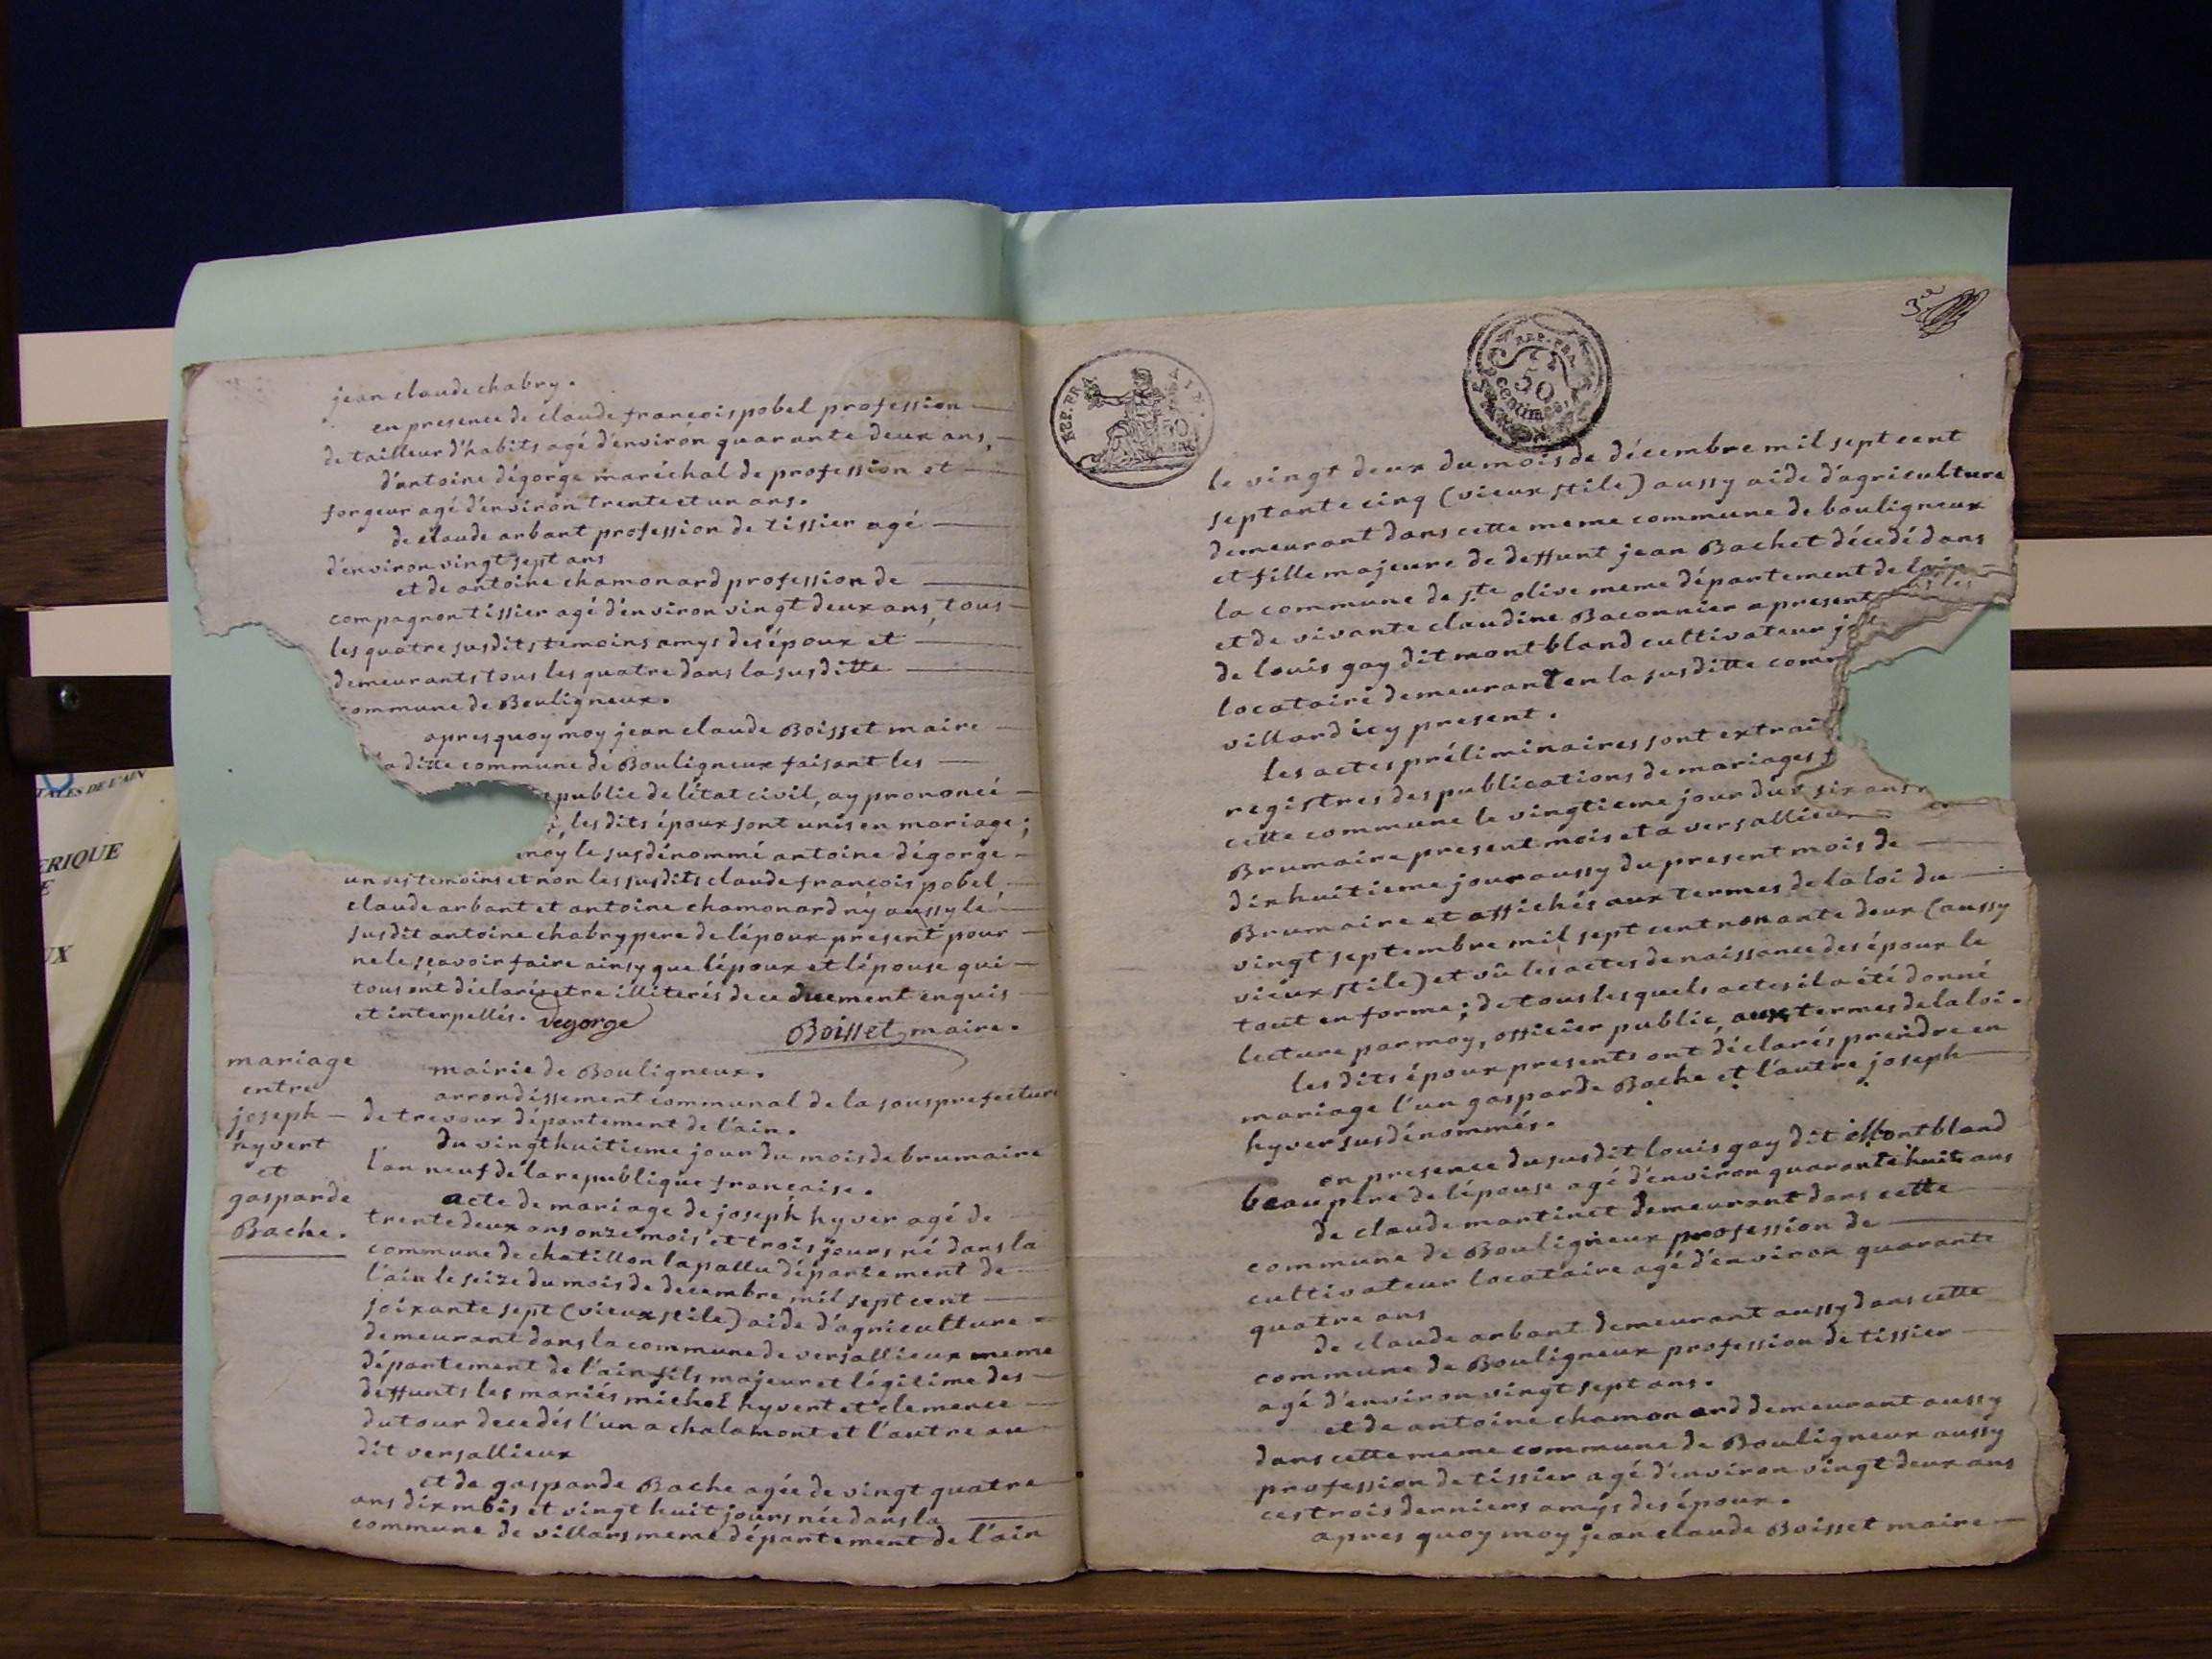 jean claude chabry.
en presence de claude françois pobel profession
de tailleur d'habits agé d'environ quarante deux ans,
d'antoine dégorge maréchal de profession et
forgeur agé d'environ trente et un ans.
de claude arbant profession de tissier agé
d'environ vingt sept ans
et de antoine chamonard profession de
compagnon tissier agé d'environ vingt deux ans, tous
les quatre susdits temoins amys des époux et
demeurants tous les quatre dans la susditte
commune de Bouligneux.
apres quoy moy jean claude Boisset maire
la ditte commune de Bouligneux faisant les
public de l'état civil, ay prononcé
les dits époux sont unis en mariage;
moy le susdénommé antoine dégorge
un des temoins et non les susdits claude françois pobel
claude arbant et antoine chamonard ny aussy le
susdit antoine chabry pere de l'époux présent pour
ne le sçavoir faire ainsy que l'époux et l'épouse qui
tous ont déclarés etre illiterés de ce duement enquis
et interpellés. Degorge
Boisset maire.
mariage
entre
joseph
hyvert
et
gasparde
Bache.
mairie de Bouligneux.
arrondissement communal de la sousprefecture
de trevoux département de l'ain.
du vingt huitieme jour du mois de brumaire
l'an neuf de la republique française.
acte de mariage de joseph hyver agé de
trente deux ans onze mois et trois jours né dans la
commune de chatillon la pallu département de
l'ain le seize du mois de decembre mil sept cent
soixante sept (vieux stile) aide d'agriculture
demeurant dans la commune de versallieux meme
département de l'ain fils majeur et légitime des
deffunts les mariés michel hyvert et clemence
dutour decedés l'un a chalamont et l'autre au
dit versallieux
et de gasparde Bache agée de vingt quatre
ans dix mois et vingt huit jours née dans la
commune de villars meme département de l'ain
REP. FRA
50
REP. FRA.
50
centimes
3
le vingt deux du mois de décembre mil sept cent
septante cinq (vieux stile) aussy aide d'agriculture
demeurant dans cette meme commune de bouligneux
et fille majeure de deffunt jean Bachet décedé dans
la commune de ste olive meme département de l'ain
et de vivante claudine Baconnier a present
de louis gay dit montbland cultivateur
locataire demeurant en la susditte com
villard icy present.
les actes préliminaires sont extrai
registres des publications de mariages
cette commune le vingtieme jour du
Brumaire present mois et a versallieux
dixhuitieme jour aussy du present mois de
Brumaire et affichés aux termes de la loi du
vingt septembre mil sept cent nonante deux (aussy
vieux stile) et vû les actes de naissance des époux le
tout en forme; de tous lesquels actes il a été donné
lecture par moy, officier public, aux termes de la loi.
les dits époux presents ont déclarés prendre en
mariage l'un gasparde Bache et l'autre joseph
hyver susdénommés.
en presence du susdit louis gay dit Montbland
beaupere de l'épouse agé d'environ quarante huit ans
de claude martinet demeurant dans cette
commune de Bouligneux profession de
cultivateur locataire agé d'environ quarante
quatre ans
de claude arbant demeurant aussy dans cette
commune de Bouligneux profession de tissier
agé d'environ vingt sept ans.
et de antoine chamonard demeurant aussy
dans cette meme commune de Bouligneux aussy
profession de tissier agé d'environ vingt deux ans
ces trois derniers amys des époux.
apres quoy moy jean claude Boisset maire